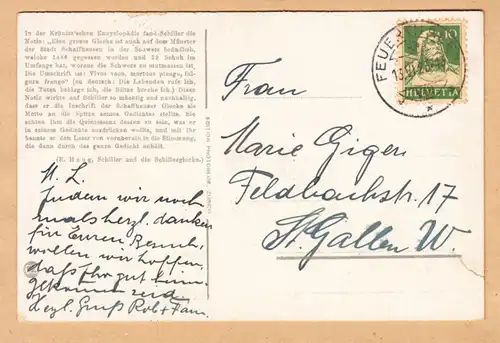 In der Krünitz'schen Encyclopädie fand Schiller die
Notiz: „Eine grosse Glocke ist auch auf dem Münster
der Stadt Schaffhausen in der Schweiz befindlich,
welche 1486 gegossen worden und 29 Schuh im
Umfange hat, woraus die Schwere zu mutmassen ist.
Die Umschrift ist: Vivos voco, mortuos plango, ful-
gura frango" (zu deutsch: Die Lebenden rufe ich,
die Toten beklage ich, die Blitze breche ich.) Diese
Notiz wirkte auf Schiller so mächtig und nachhaltig,
dass er die Inschrift der Schaffhauser Glocke als
Motto an die Spitze seines Gedichtes stellte. Sie
schien ihm die Quintessenz dessen zu sein, was er
in seinem Gedichte ausdrücken wollte, und mit ihr
konnte er den Leser von vornherein in die Stimmung,
die dann durch das Gedicht geht, versetzen.
(E. Haug, Schiller und die Schillerglocke.)
M. L.
Indem wir noch
mals herzl. danken
für Euren Besuch,
wollen wir hoffen,
daß Ihr gut heim
gekommen seid
Herzl. Gruß Rob + Fam.
EDITION PHOTOGLOB ZÜRICH
FEUER
10
HELVETIA
Frau
Marie Giger
Feldbachstr. 17
St. Gallen W.